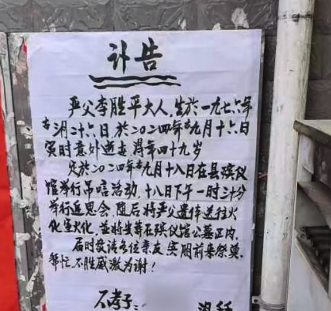 讣告
严父李胜平大人，生於一九七六年
古月二十六日於二0二四年九月十六日
寅时意外逝去享年四十九岁
兹於二0二四年九月十八日在县殡仪
馆举行吊唁活动，十八日下午一时三十分
举行追思会，随后将严父遗体送往火
化室火化，并将安葬在殡仪馆公墓区内，
届时敬请各位亲友实期前来祭奠、
帮忙不胜感激为谢！
不孝子